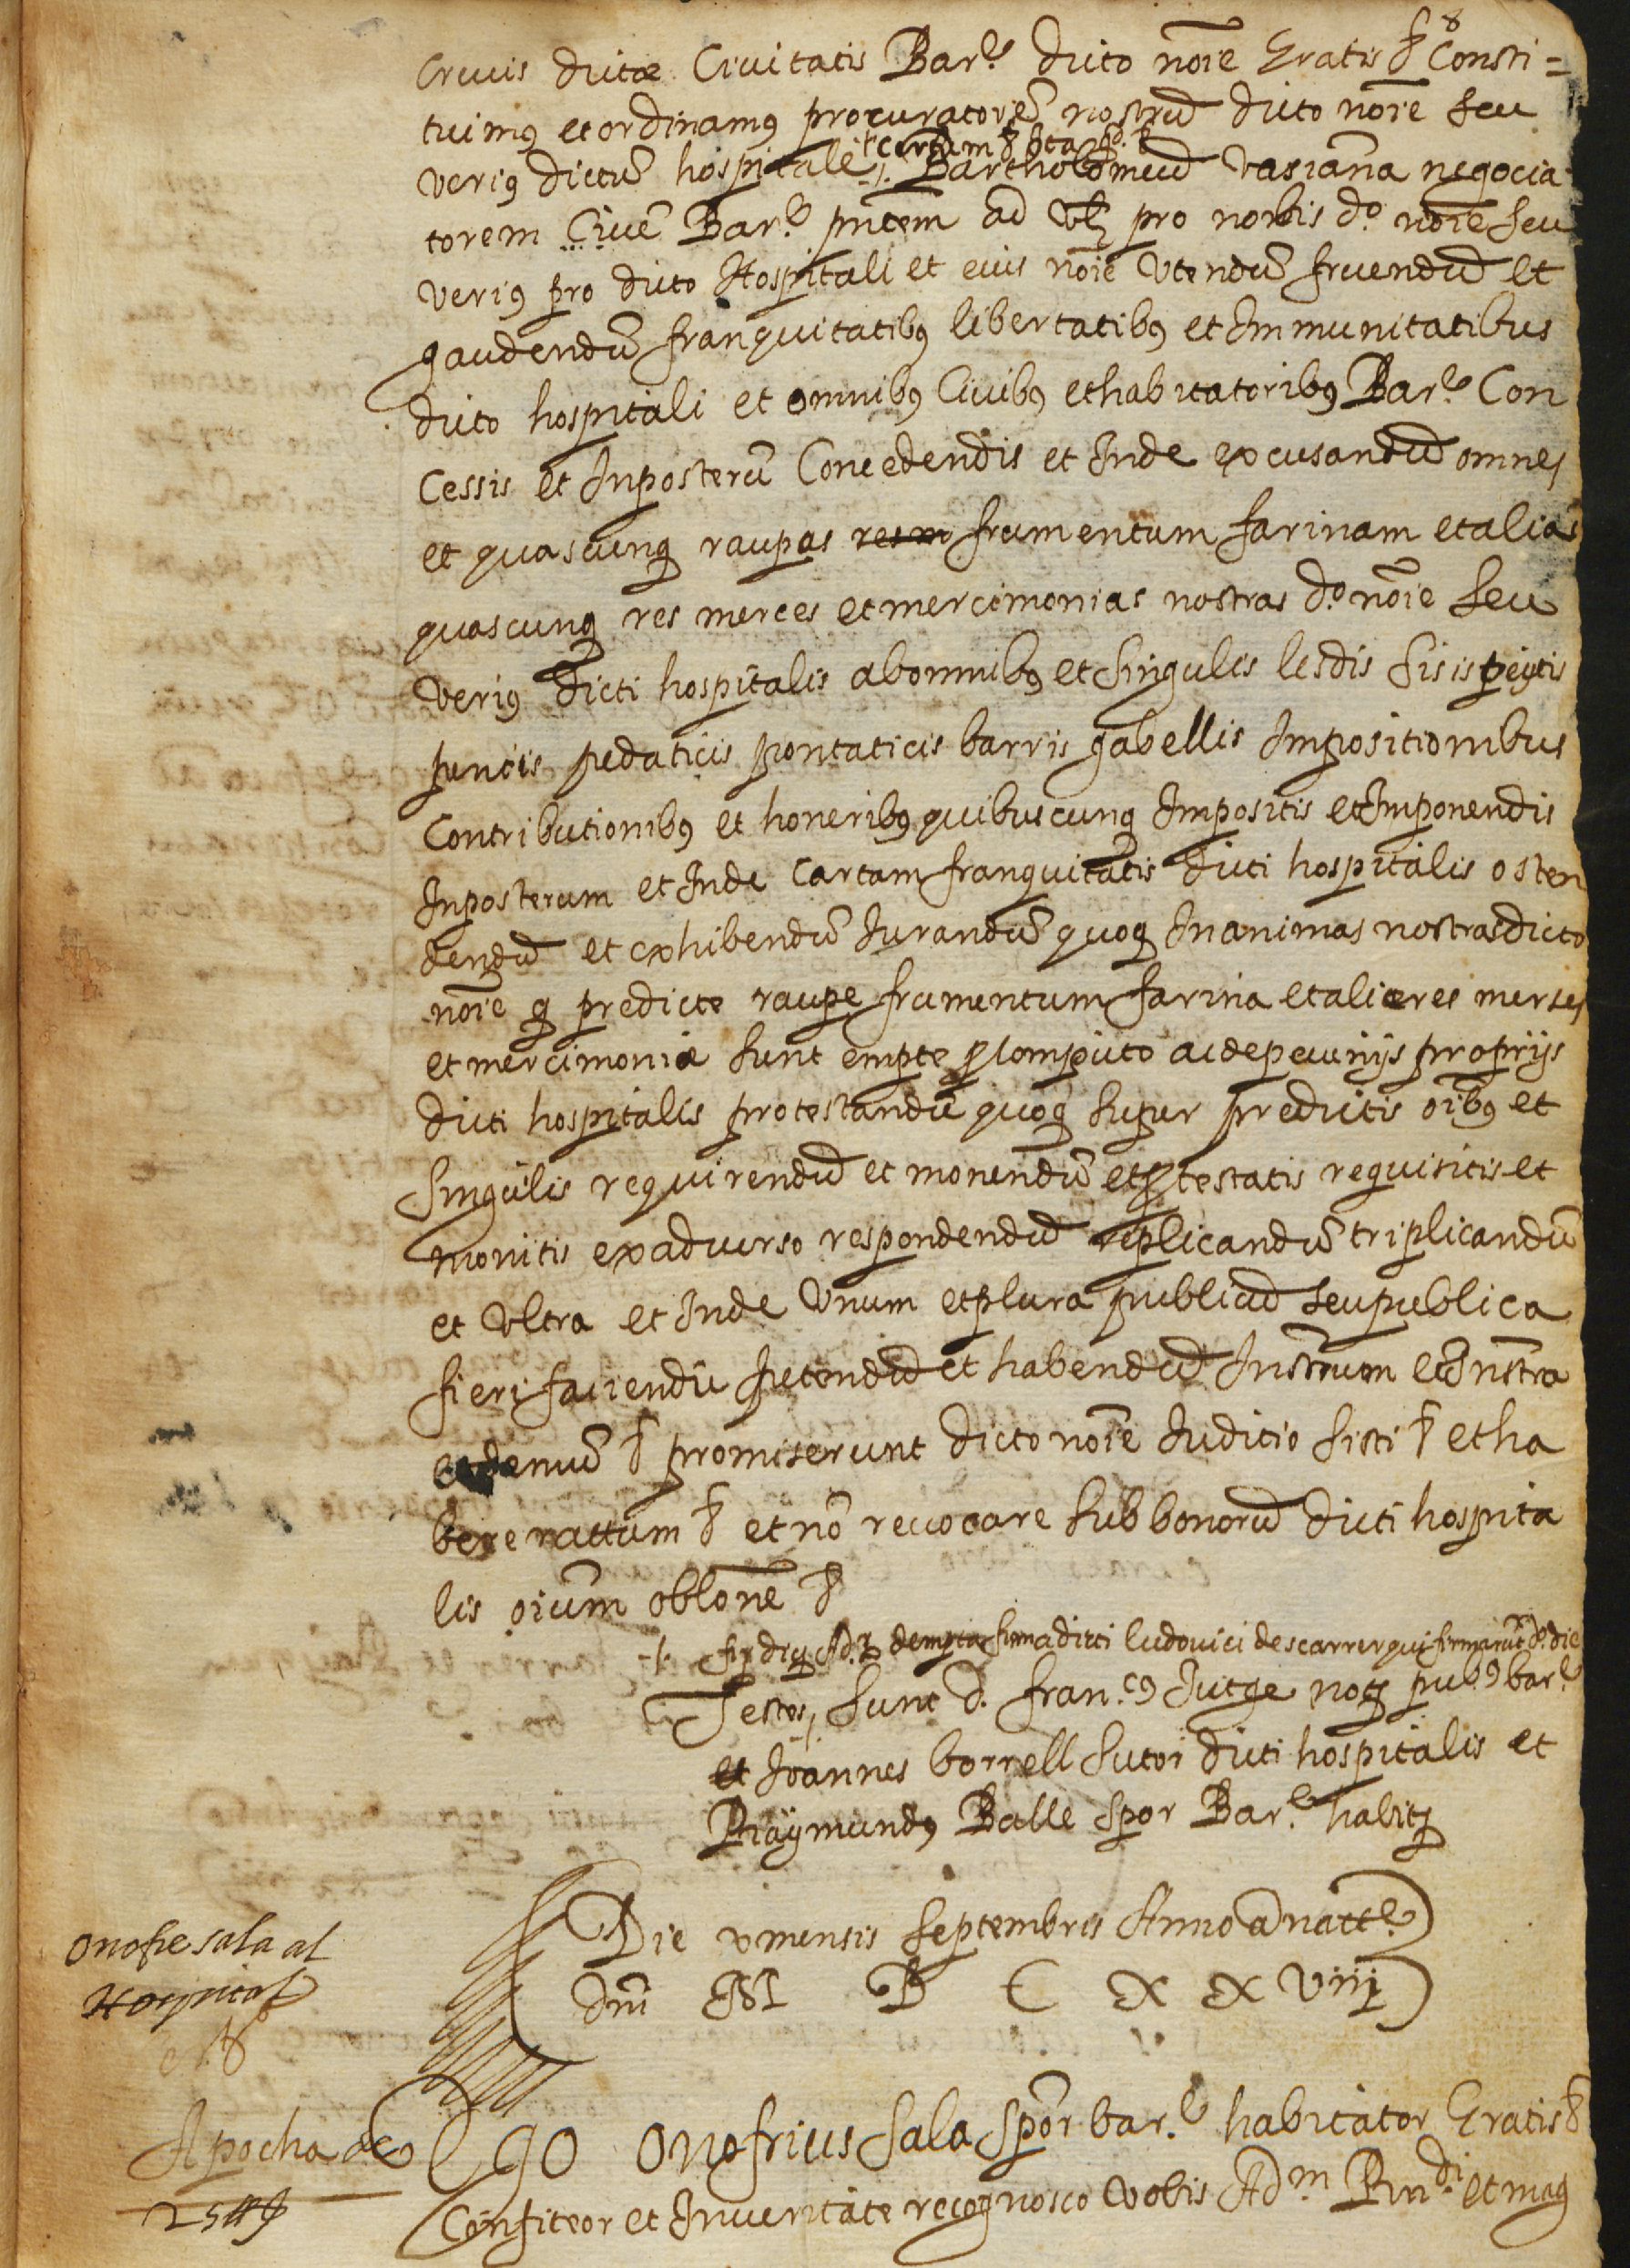 Crucis dictæ Ciuitatis Bar.e dicto nõie Gratis & Consti=
tuimus et ordinamus procuratorẽ nostrũ dicto nõie seu
certum &
verius dictũ hospitale Bartholomeũ vasiãna negocia
torem Ciuẽ Bar.e pñtem ad vlz pro nobis d.o nõie seu
verius pro dicto Hospitali et eius nõie vtendũ fruendũ et
gaudendũ franquitatibus libertatibus et Immunitatibus
dicto hospitali et omnibus Ciuibus et habitatoribus Bar.e Con
Cessis et Inposterũ Concedendis et Inde excusandũ omnes
et quascunq raupas frumentum farinam et alias
quascunq res merces et mercimonias nostras d.o nõie seu
verius dicti hospitalis ab omnibus et singulis lesdis sisis
penciis pedaticis pontaticis barris gabellis Impositionibus
Contributionibus et honeribus quibuscunq Impositis et Imponendis
Inposterum et Inde Cartam franquitatis dicti hospitalis osten
dendũ et exhibendũ Iurandũ quoq In animas nostras dicto
nõie q predicte raupe frumentum farina et aliæ res merses
et mercimoniæ sunt empte p computo ac de pecunijs proprijs
dicti hospitalis protestandũ quoq super predictis oĩbus et
Singulis requirendũ et monendũ et ptestatis requisitis et
monitis ex aduerso respondendũ replicandũ triplicandũ
et vltra et Inde vnum et plura publicũ seu publica
fieri faciendũ petendũ et habendũ Instrũm et Instra
et demũ & promiserunt dicto nõie Iuditio sisti & et ha
bere rattum & et nõ reuocare sub bonorũ dicti hospita
lis oĩum oblõne &
dempta firma dicti ludouici descarrer qui firmauit d.o die
Testes sunt d. fran.cus Iutge notz pub.us bar.e
et Joannes borrell sutor dicti hospitalis et
Raÿmundus Balle Spor Bar.e habitz
Die v mensis Septembris Anno a natte.
Dñi M D C X X viiij
Onofre sala al
Hospital
Apocha de
25 ₶
Ego Onofrius Sala Spõr bar.e habitator Gratis &
Confiteor et In veritate recognosco vobis Ad.m Rñ.di et mag